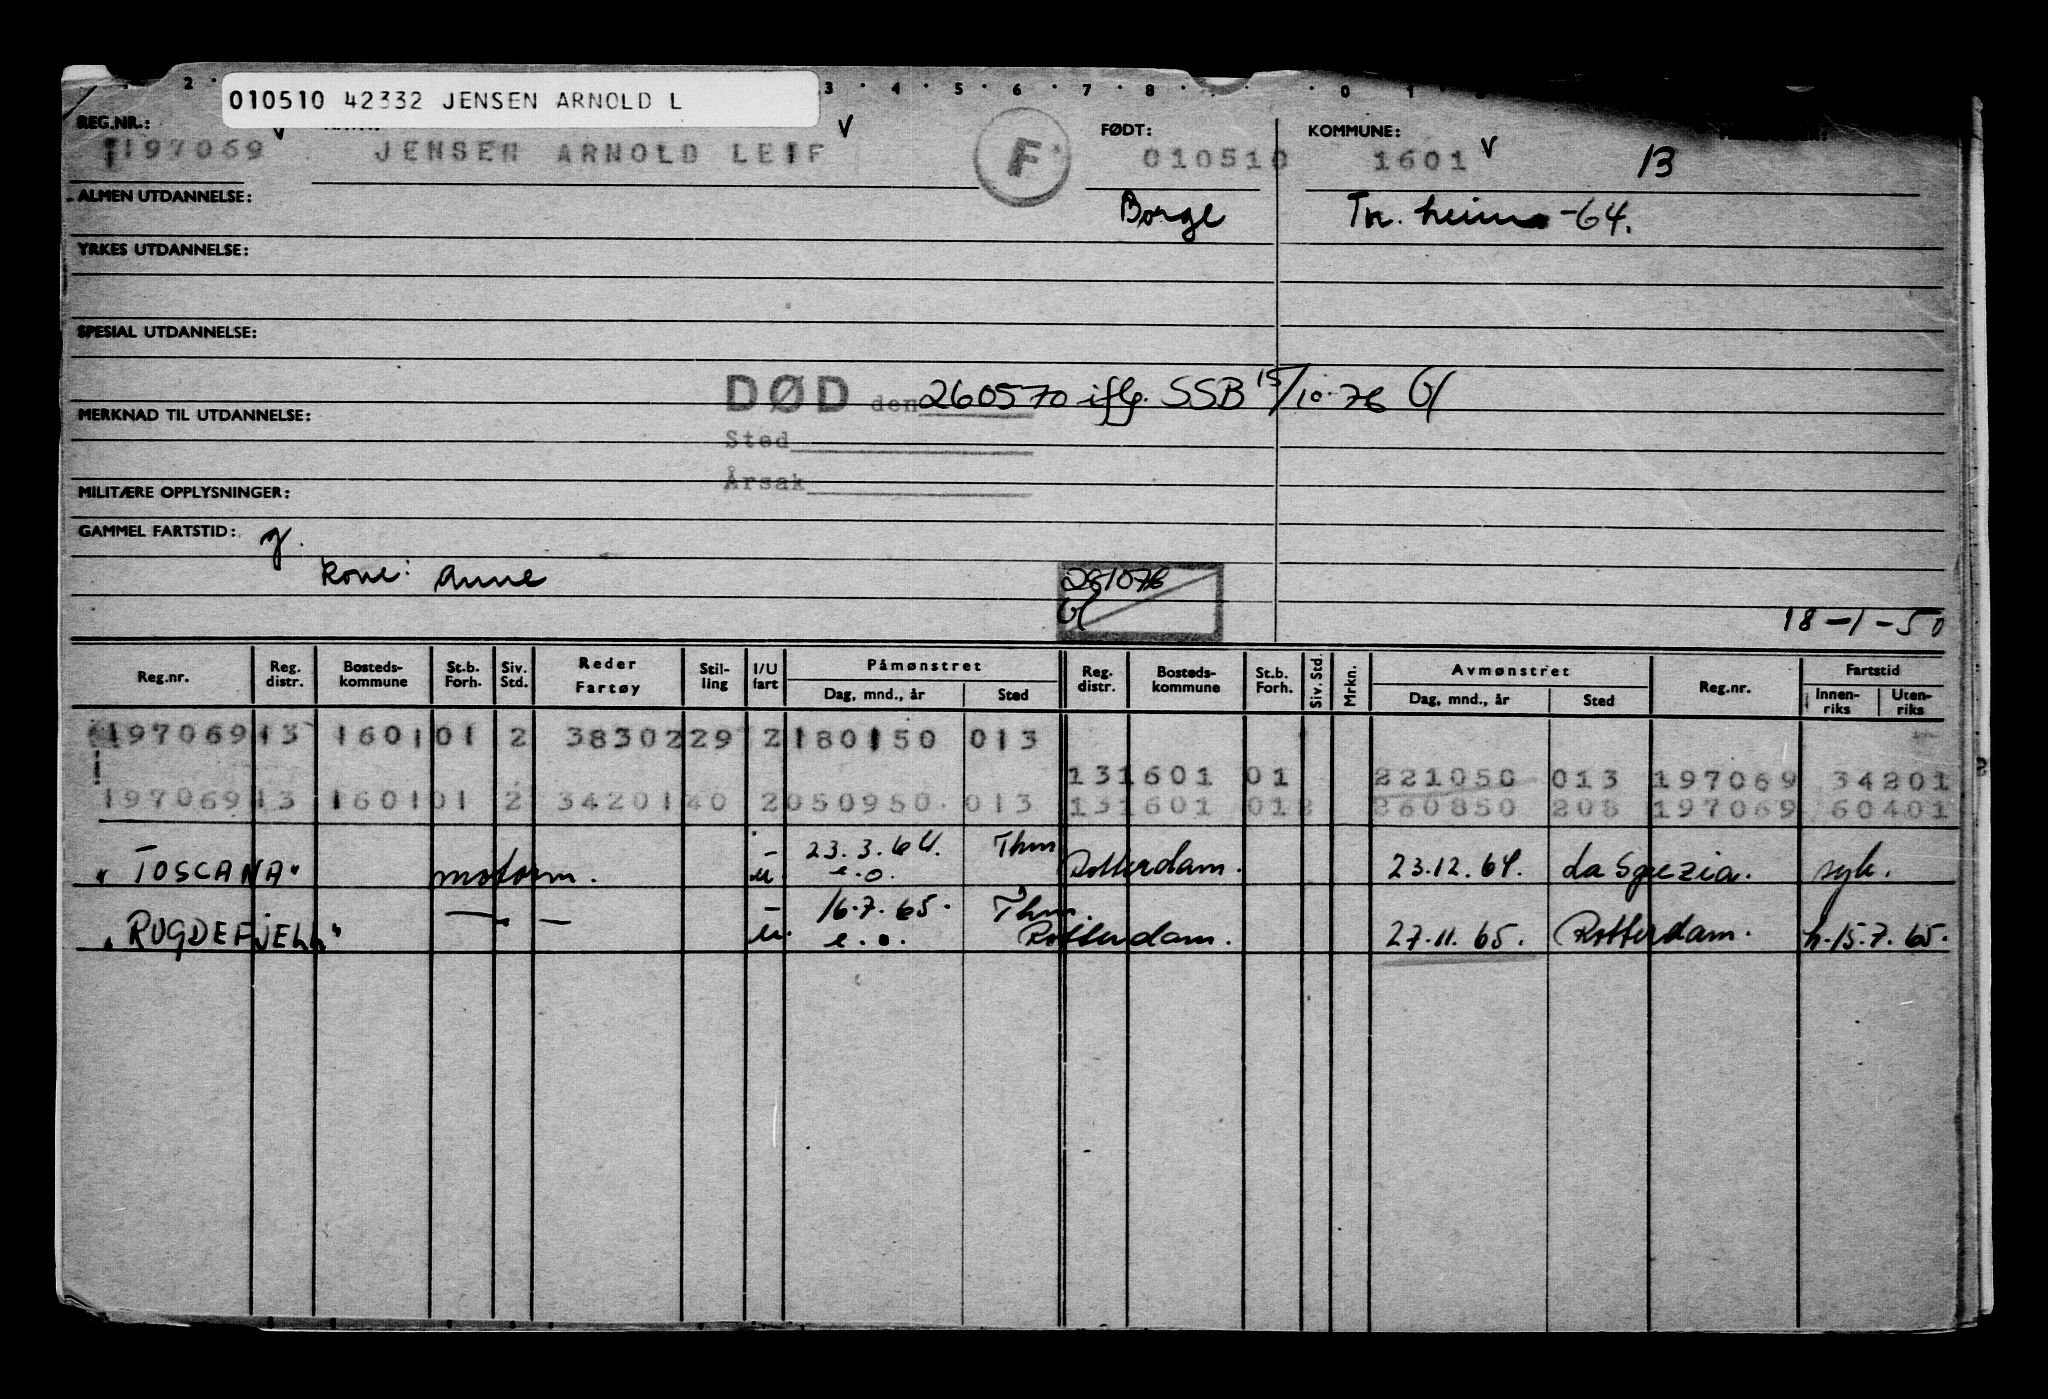 010510 42332 JENSEN ARNOLD L
REG.NR.: FØDT: KOMMUNE:
197069 V JENSEN ARNOLD LEIF V F 010510 1601 V 13
ALMEN UTDANNELSE: Borge Tr. heim -64.
YRKES UTDANNELSE:
SPESIAL UTDANNELSE:
DØD den 260570 iflg. SSB 15/10-76
MERKNAD TIL UTDANNELSE:
Sted
Årsak
MILITÆRE OPPLYSNINGER:
GAMMEL FARTSTID: g.
kone: Anne 281076
18-1-50
Reg.nr. Reg. distr. Bosteds- kommune St.b. Forh. Siv. Std. Reder Fartøy Stil- ling I/U fart Påmønstret Dag, mnd., år Sted Reg. distr. Bosteds- kommune St.b. Forh. Siv. Std. Mrkn. Avmønstret Dag, mnd., år Sted Reg.nr. Fartstid Innen- riks Uten- riks
197069 13 1601 01 2 38302 29 2 180150 013
13 1601 01 221050 013 197069 34201
197069 13 1601 01 2 34201 40 2 050950 013 13 1601 01 2 260850 208 197069 60401
"TOSCANA" motorm. - u 23.3.64. e.o. Thm Rotterdam. 23.12.64. La Spezia. syk.
"RUGDEFJELL" — " — - u. 16.7.65. e.o. Thm. Rotterdam. 27.11.65. Rotterdam. h.15.7.65.